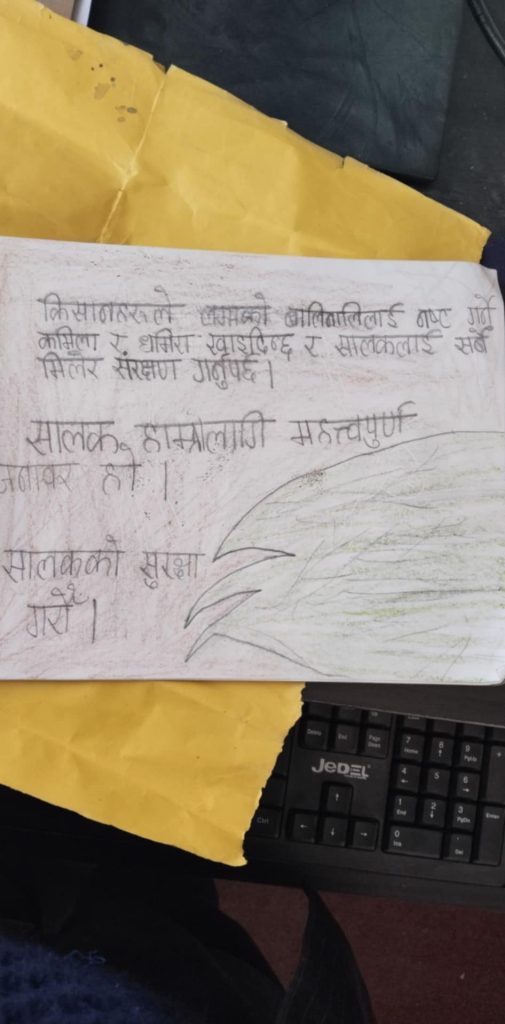 किसानहरुले लगाको बालिनालिलाई नष्ट गर्ने
कमिला र धमिरा खाइदिन्छ र सालकलाई सबै
मिलेर संरक्षण गर्नुपर्छ।
सालक हाम्रोलागि महत्त्वपुर्ण
जनावर हो ।
सालकको सुरक्षा
गरौं ।
JEDEL
Delete
End
Page Down
7 Home
8 ↑
9 PgUp
+
4 ←
5
6 →
1 End
2 ↓
3 PgDn
Enter
0 Ins
. Del
Ctrl
↑
← ↓ →